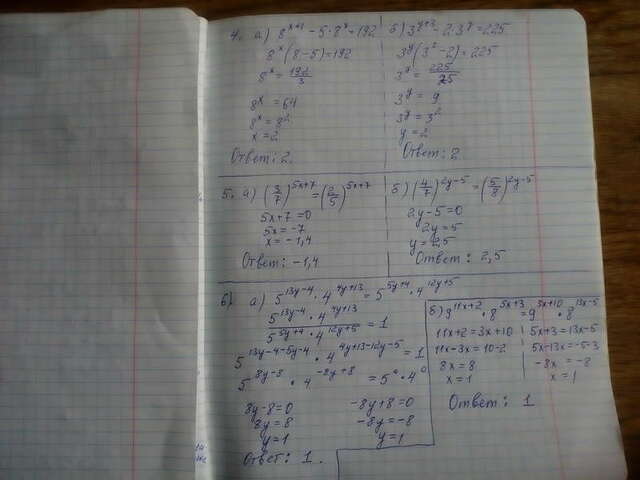 4. а) 8^(x+1) - 5·8^x = 192
8^x(8-5) = 192
8^x = 192/3
8^x = 64
8^x = 8^2
x = 2
Ответ: 2.
б) 3^(y+2) - 2·3^y = 225
3^y(3^2-2) = 225
3^y = 225/25
3^y = 9
3^y = 3^2
y = 2
Ответ: 2
5. а) (3/7)^(5x+7) = (2/5)^(5x+7)
5x+7 = 0
5x = -7
x = -1,4
Ответ: -1,4
б) (4/7)^(2y-5) = (5/8)^(2y-5)
2y-5 = 0
2y = 5
y = 2,5
Ответ: 2,5
6) а) 5^(13y-4) · 4^(4y+13) = 5^(5y+4) · 4^(12y+5)
5^(13y-4) · 4^(4y+13) / 5^(5y+4) · 4^(12y+5) = 1
5^(13y-4-5y-4) · 4^(4y+13-12y-5) = 1
5^(8y-8) · 4^(-8y+8) = 5^0 · 4^0
8y-8 = 0 -8y+8 = 0
8y = 8 -8y = -8
y = 1 y = 1
Ответ: 1.
б) 9^(11x+2) · 8^(5x+3) = 9^(3x+10) · 8^(13x-5)
11x+2 = 3x+10 5x+3 = 13x-5
11x-3x = 10-2 5x-13x = -5-3
8x = 8 -8x = -8
x = 1 x = 1
Ответ: 1